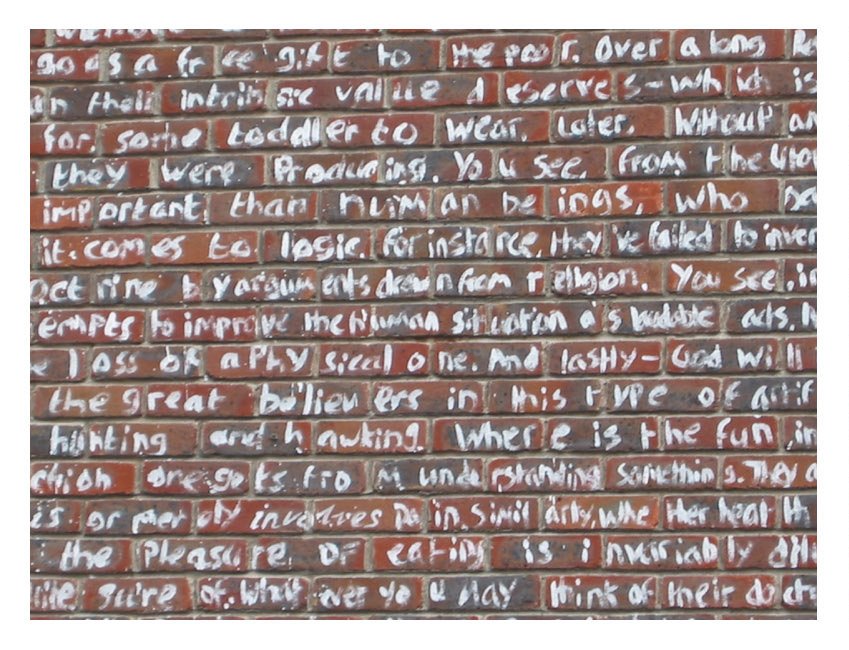 go as a free gift to the poor. Over a long
in their intrinsic value deserves - which is
for. some toddler to wear. Later. Without an
they were Producing. You see, from the
important than human beings, who
it. comes to logic. For instance, they've failed to inven
octrine by arguments drawn from religion. You see, in
empts to improve the Human situation as laudable acts.
loss of a Physical one. And lastly - God will
the great believers in this type of artif
hunting and hawking. Where is the fun, in
which one gets from understanding something. They
is or merely involves Pain. Similarly, whether heal th
the Pleasure of eating is invariably
sure of. Whatever you may think of their doct